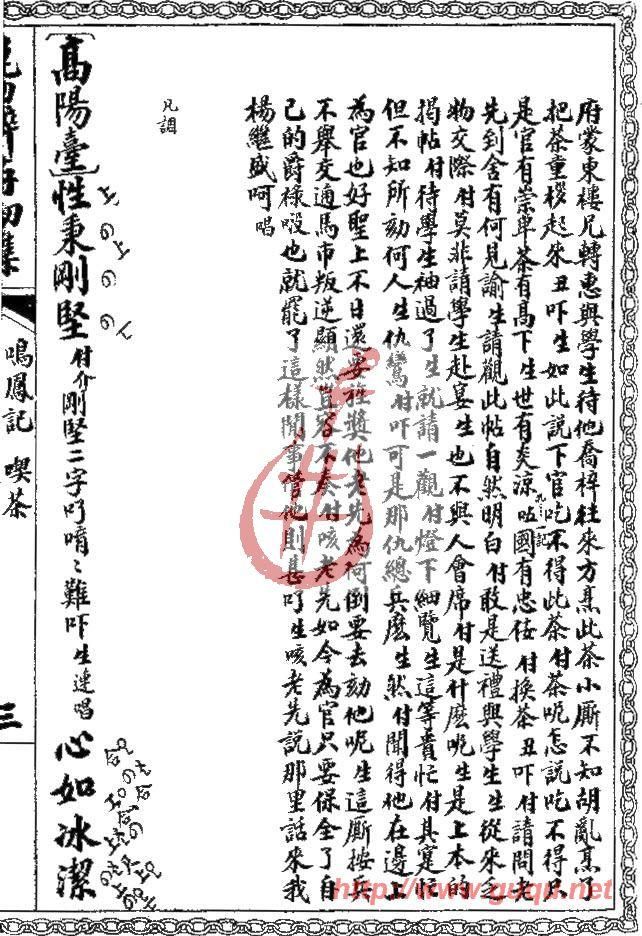 府蒙東樓兄轉惠與學生待他喬梓往來方烹此茶小厮不知胡亂烹了
把茶重拶起來丑吓生如此說下官吃不得此茶付茶呢怎說吃不得只
是官有崇卑茶有高下生世有炎涼國有忠佞付換茶丑吓付請問老
先到舍有何見諭生請觀此帖自然明白付敢是送禮與學生生從來無
物交際付莫非請學生赴宴生也不與人會席付是什麽呢生是上本的
揭帖付待學生袖過了生就請一觀付燈下細覽生這等貴忙付其寔忙
但不知所劾何人生仇鸞付吓可是那仇總兵麽生然付聞得他在邊上
為官也好聖上不日還要旌獎他老先為何倒要去劾他呢生這厮按兵
不舉交通馬市叛逆顯然豈容不奏付咳老先如今為官只要保全了自
己的爵祿也就罷了這樣閒事管他則甚吖生咳老先說那里話來我
楊繼盛呵唱
凡調
〔高陽臺〕性秉剛堅付介剛堅二字吖唷〻難吓生連唱心如冰潔
鳴鳳記 喫茶
三
http://www.guqu.net